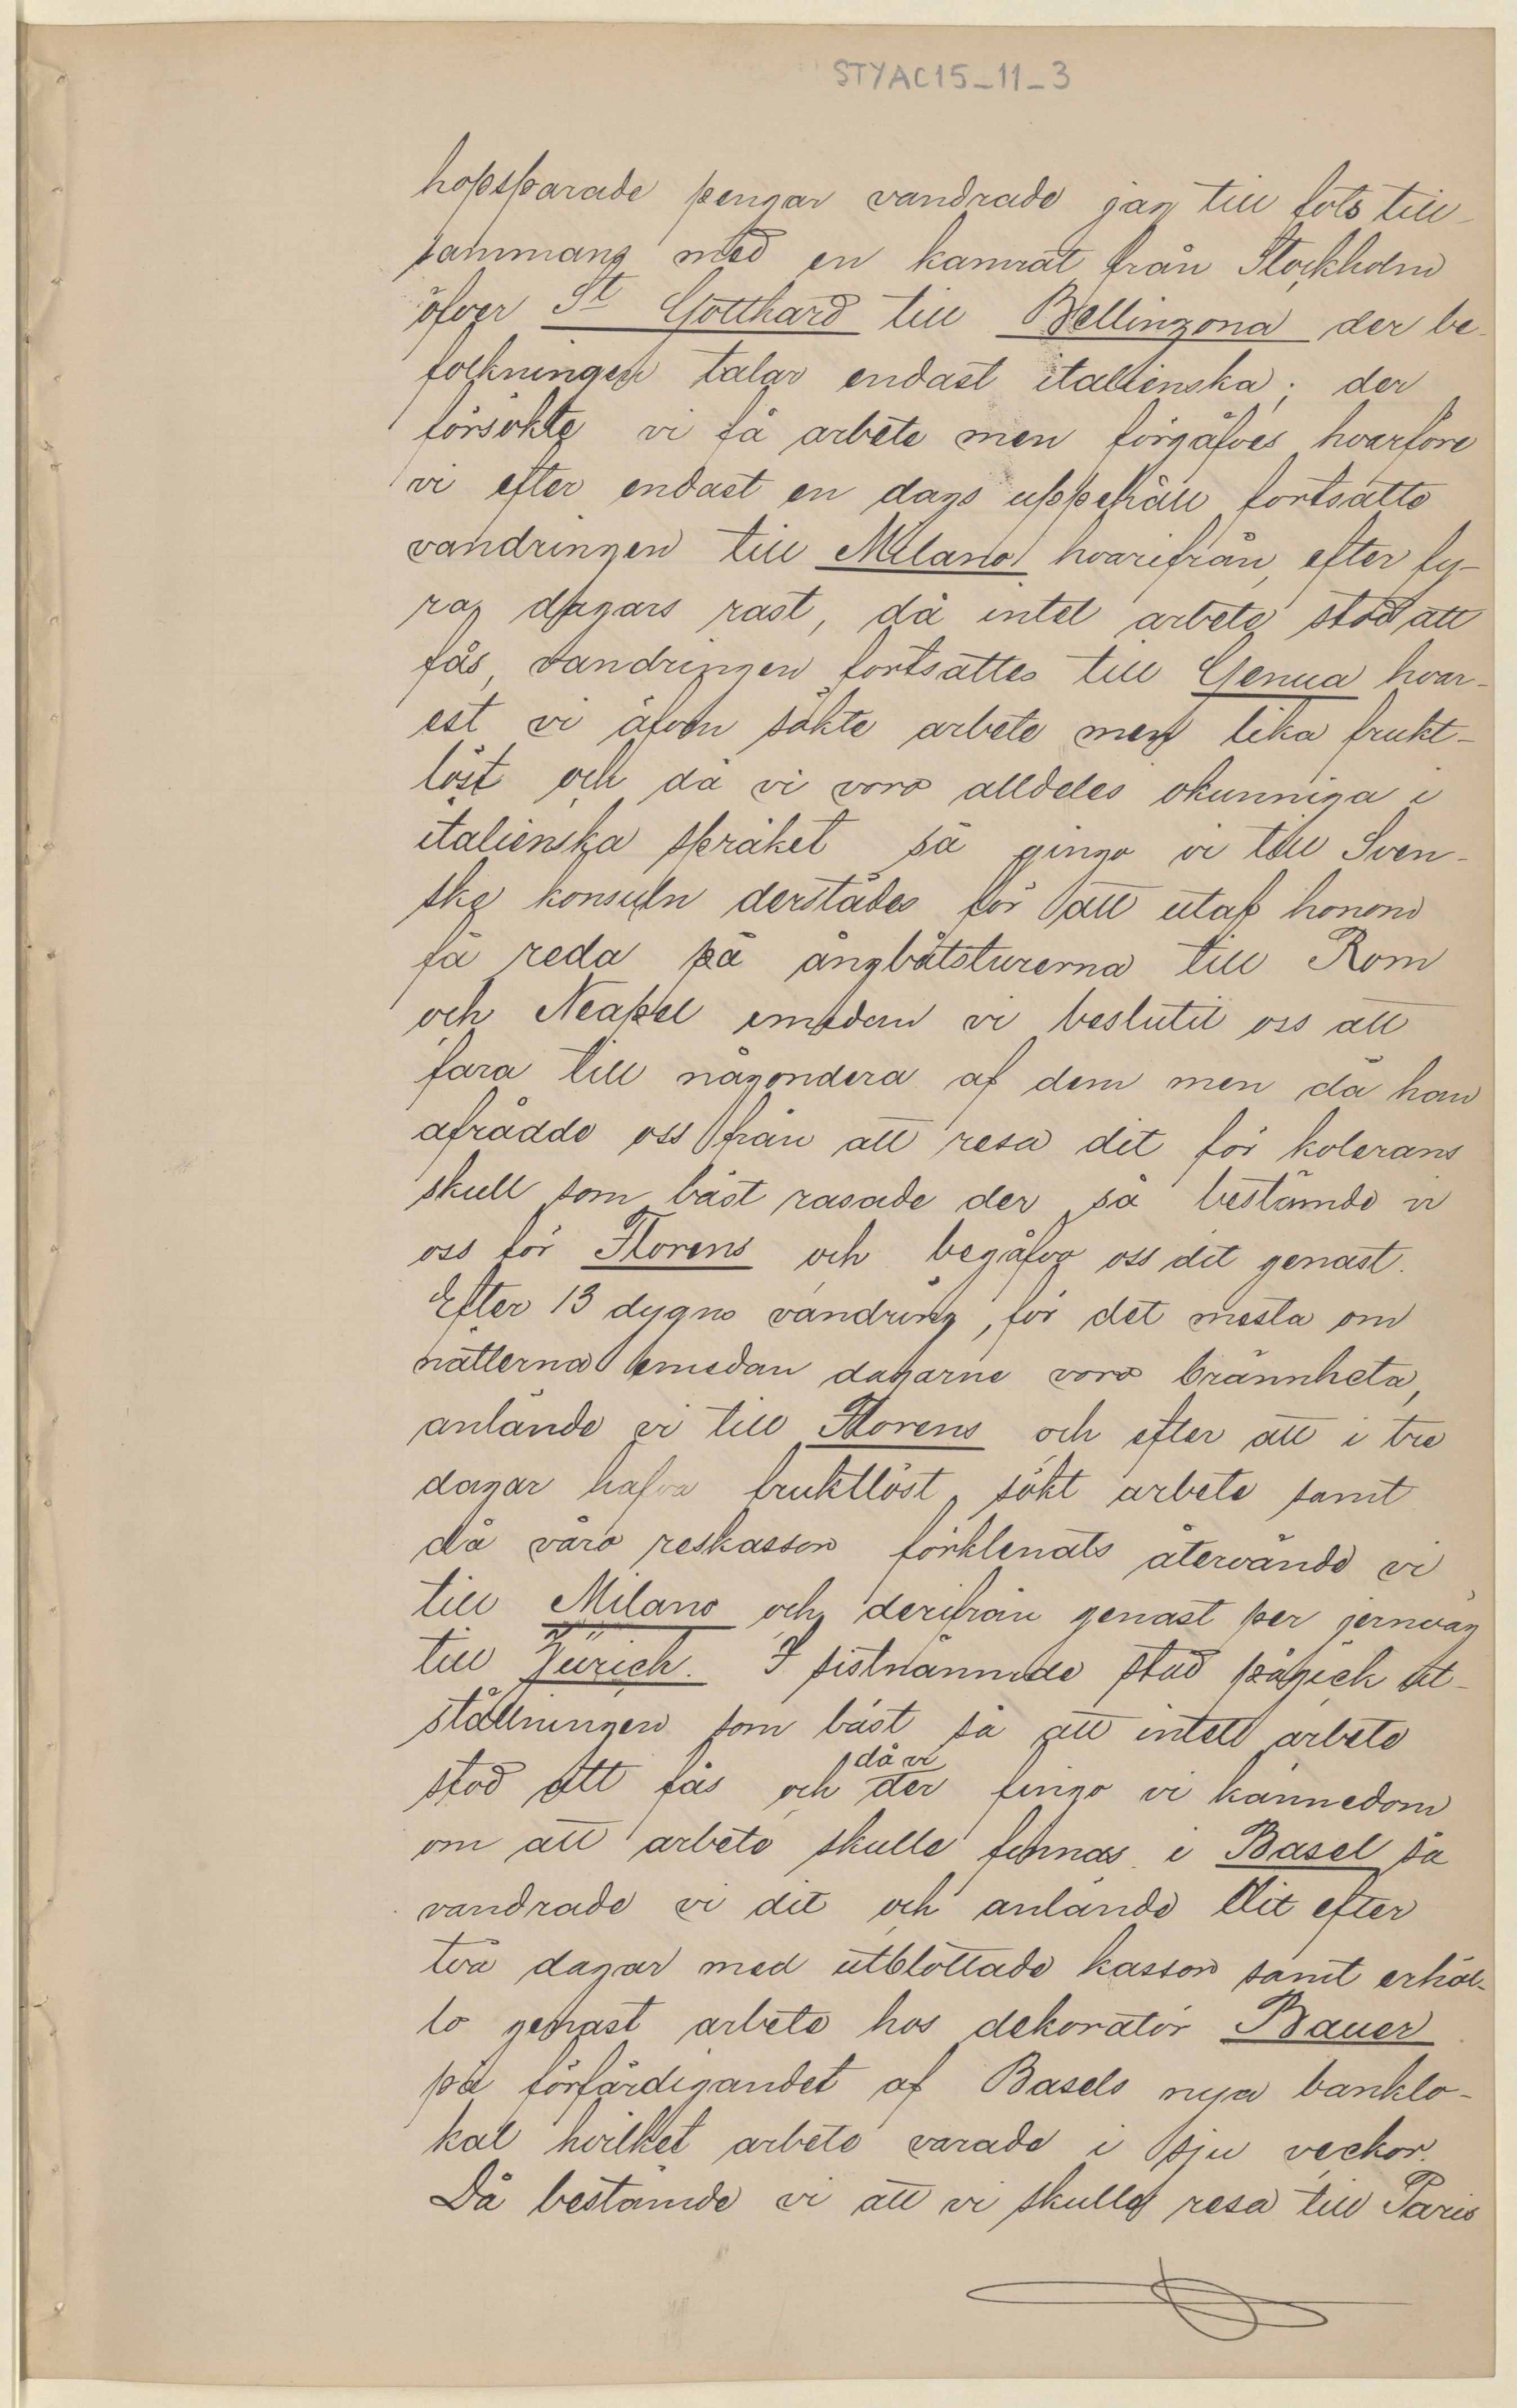 STYAC15_11_3
hopsparade pengar vandrade jag till fots till
sammans med en kamrat från Stockholm
öfver St Gotthard till Bellinzona der be-
folkningen talar endast italienska; der
försökte vi få arbete men förgäfves hvarföre
vi efter endast en dags uppehåll fortsatte
vandringen till Milano hvarifrån, efter fy-
ra dagars rast, då intet arbete stod att
fås, vandringen fortsattes till Genua hvar-
est vi äfven sökte arbete men lika frukt-
löst och då vi voro alldeles okunniga i
italienska språket så gingo vi till Sven-
ske konsuln derstädes för att utaf honom
få reda på ångbåtsturerna till Rom
och Neapel emedan vi beslutit oss att
fara till någondera af dem men då han
afrådde oss från att resa dit för kolerans
skull som bäst rasade der så bestämde vi
oss för Florens och begåfvo oss dit genast.
Efter 13 dygns vandring, för det mesta om
nätterna emedan dagarne voro brännheta,
anlände vi till Florens och efter att i tre
dagar hafva fruktlöst sökt arbete samt
då våra reskassor förklenats återvände vi
till Milano och derifrån genast per jernväg
till Zürich. I sistnämnde stad pågick ut-
ställningen som bäst så att intet arbete
stod att fås och der fingo vi kännedom
då vi
om att arbete skulle finnas i Basel så
vandrade vi dit och anlände dit efter
två dagar med utblottade kassor samt erhöl-
lo genast arbete hos dekoratör Bauer
på förfärdigandet af Basels nya banklo-
kal hvilket arbete varade i sju veckor.
Då bestämde vi att vi skulle resa till Paris